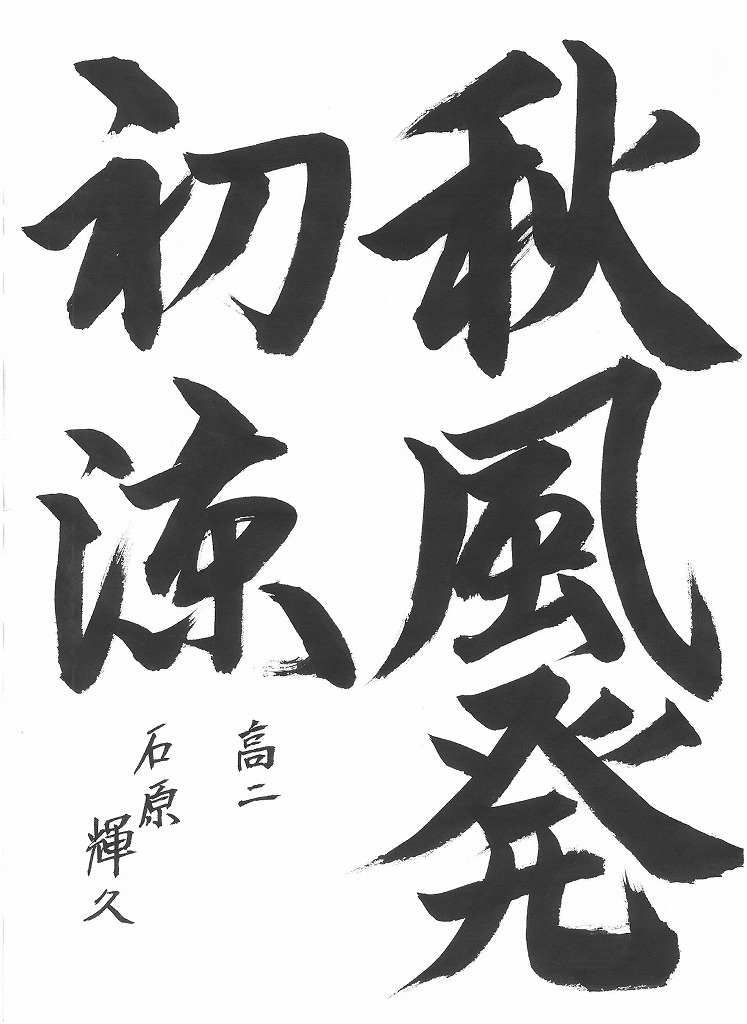 秋風発
初涼
高二
石原 輝久